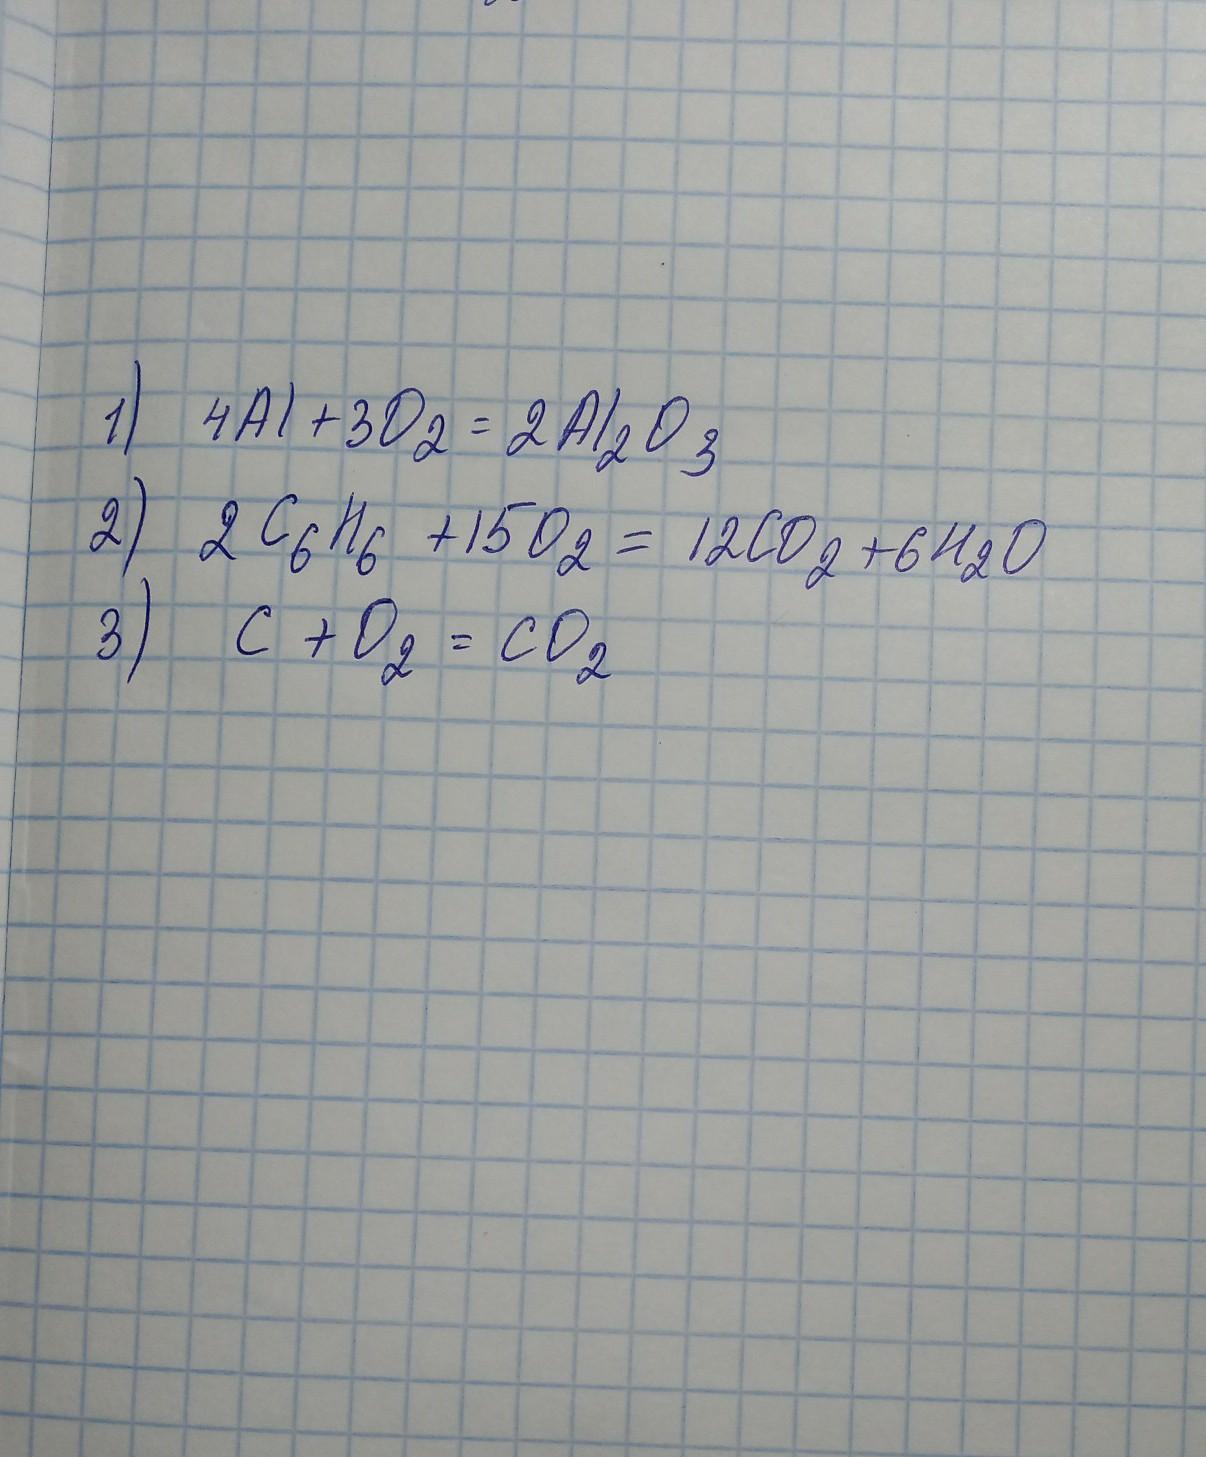 1) 4Al+3O₂=2Al₂O₃
2) 2C₆H₆+15O₂=12CO₂+6H₂O
3) C+O₂=CO₂